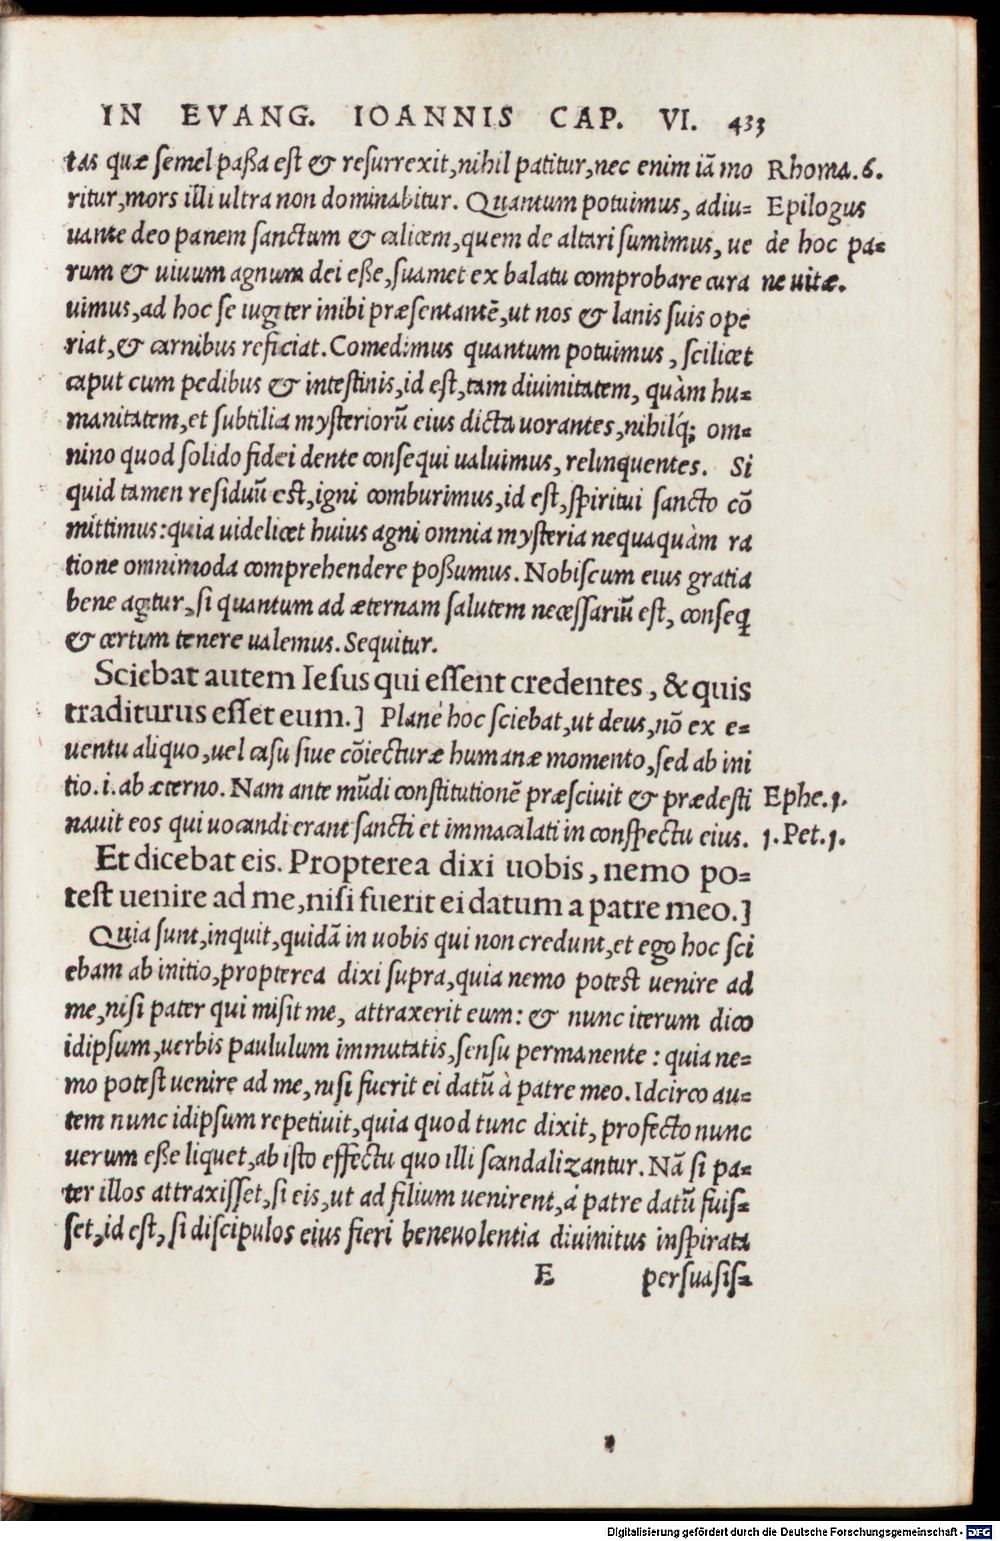 IN EVANG. IOANNIS CAP. VI. 433
tas quæ semel paßa est & resurrexit, nihil patitur, nec enim iã mo
Rhoma. 6.
ritur, mors illi ultra non dominabitur. Quantum potuimus, adiu=
Epilogus
uante deo panem sanctum & calicem, quem de altari sumimus, ue
de hoc pa=
rum & uiuum agnum dei eße, suamet ex balatu comprobare cura
ne uitæ.
uimus, ad hoc se iugiter inibi præsentantẽ, ut nos & lanis suis ope
riat, & carnibus reficiat. Comedimus quantum potuimus, scilicet
caput cum pedibus & intestinis, id est, tam diuinitatem, quàm hu=
manitatem, et subtilia mysteriorũ eius dicta uorantes, nihilq́; om=
nino quod solido fidei dente consequi ualuimus, relinquentes. Si
quid tamen residuũ est, igni comburimus, id est, spiritui sancto cõ
mittimus: quia uidelicet huius agni omnia mysteria nequaquàm ra
tione omnimoda comprehendere poßumus. Nobiscum eius gratia
bene agitur, si quantum ad æternam salutem necessariũ est, conseq̃
& certum tenere ualemus. Sequitur.
Sciebat autem Iesus qui essent credentes, & quis
traditurus esset eum.] Planè hoc sciebat, ut deus, nõ ex e=
uentu aliquo, uel casu siue cõiecturæ humanæ momento, sed ab ini
tio. i. ab æterno. Nam ante mũdi constitutionẽ præsciuit & prædesti
Ephe. 1.
nauit eos qui uocandi erant sancti et immaculati in conspectu eius.
1. Pet. 1.
Et dicebat eis. Propterea dixi uobis, nemo po=
test uenire ad me, nisi fuerit ei datum a patre meo.]
Quia sunt, inquit, quidã in uobis qui non credunt, et ego hoc sci
ebam ab initio, propterea dixi supra, quia nemo potest uenire ad
me, nisi pater qui misit me, attraxerit eum: & nunc iterum dico
idipsum, uerbis paululum immutatis, sensu permanente: quia ne=
mo potest uenire ad me, nisi fuerit ei datũ à patre meo. Idcirco au=
tem nunc idipsum repetiuit, quia quod tunc dixit, profecto nunc
uerum eße liquet, ab isto effectu quo illi scandalizantur. Nã si pa=
ter illos attraxisset, si eis, ut ad filium uenirent, à patre datũ fuis=
set, id est, si discipulos eius fieri beneuolentia diuinitus inspirata
E persuasis=
Digitalisierung gefördert durch die Deutsche Forschungsgemeinschaft - DFG